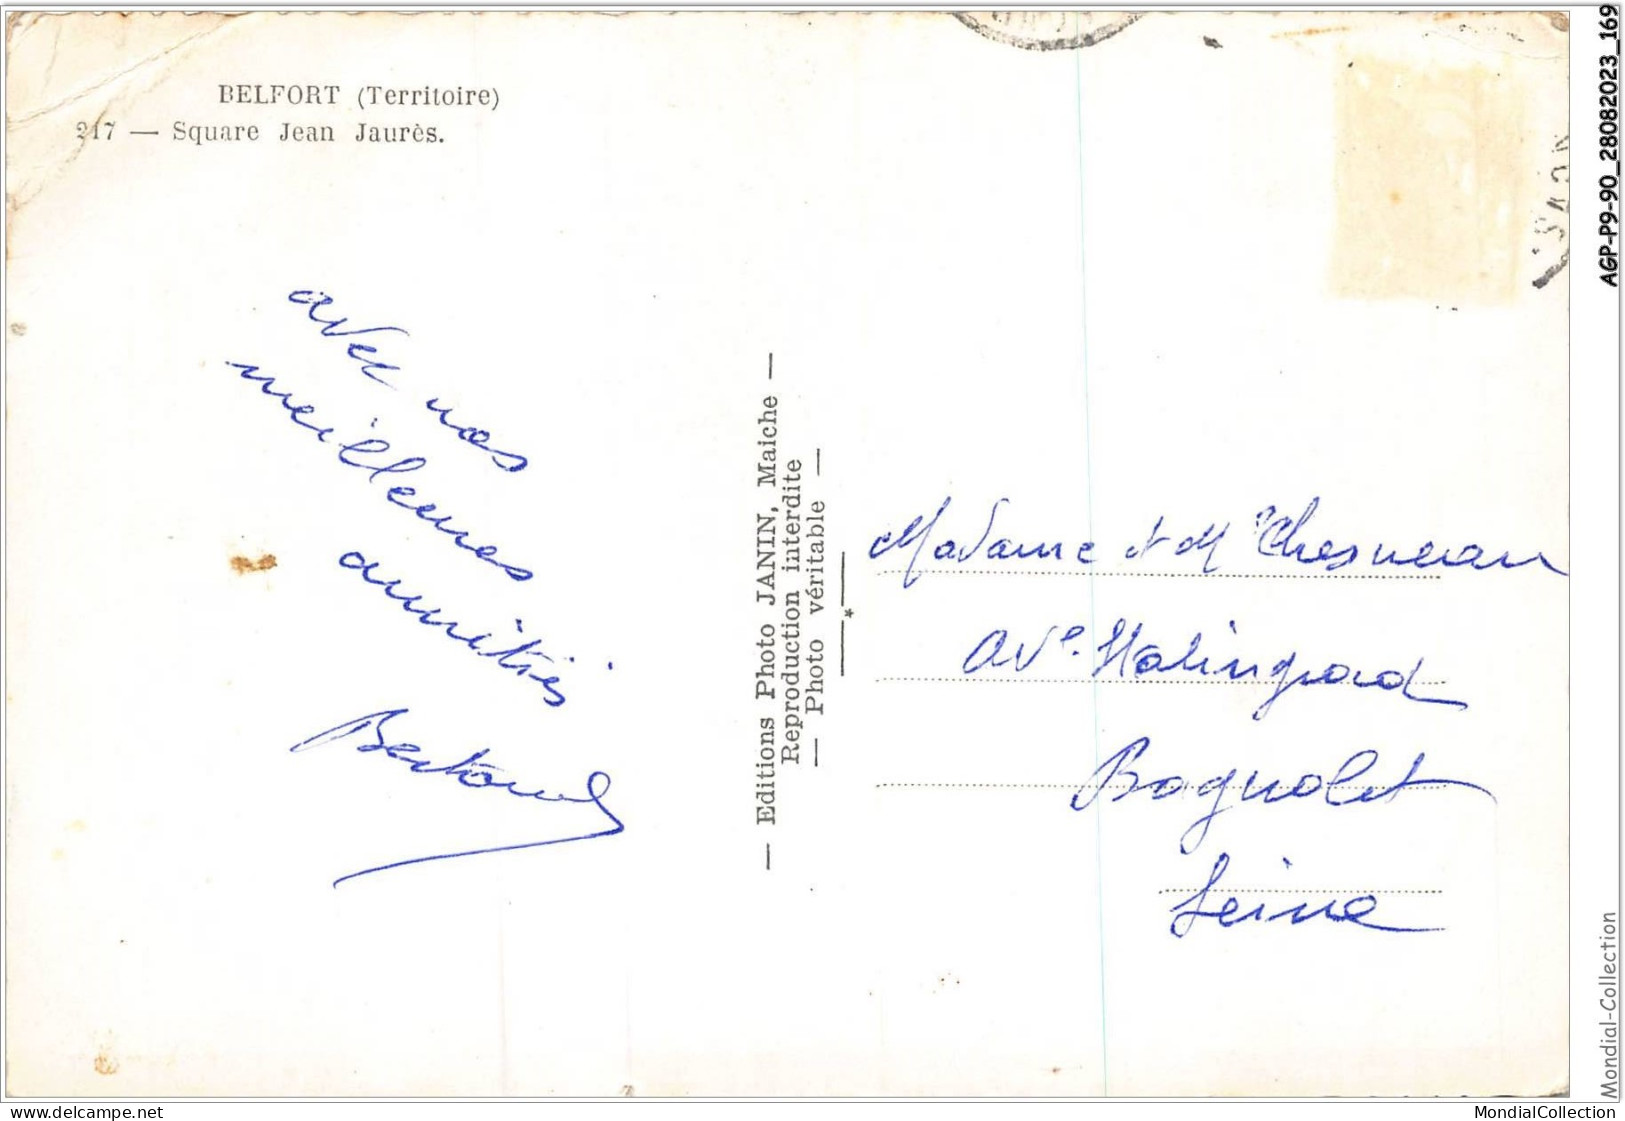 BELFORT (Territoire)
217 — Square Jean Jaurès.
avec nos
meilleures
amitiés
Bertrand
— Editions Photo JANIN, Maiche —
Reproduction interdite
— Photo véritable —
*
Madame et Mr Chesneau
Ave. Stalingrad
Bagnolet
Seine
AGP-P9-90_28082023_169
Mondial-Collection
www.delcampe.net
MondialCollection